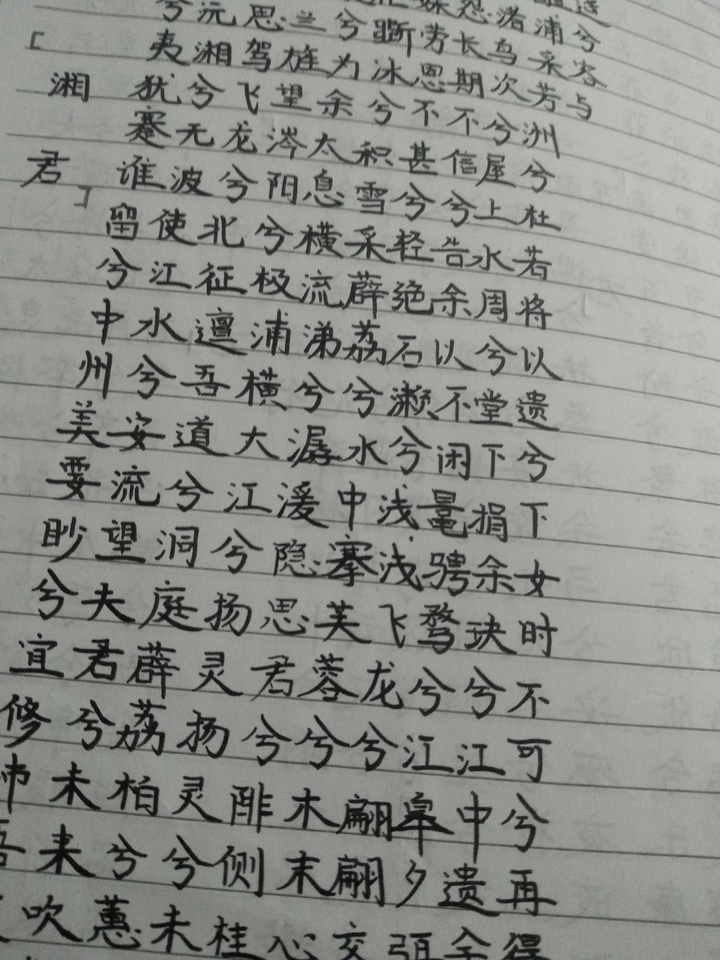 「湘君」
兮夷犹蹇谁留兮中州美要眇兮宜修沛吾
沅湘兮无波使江水兮安流望夫君兮未来吹
思驾飞龙兮北征邅吾道兮洞庭薜荔柏兮蕙
兰旌望涔阳兮极浦横大江兮扬灵扬灵兮未
兮为余太息横流涕兮潺湲隐思君兮陫侧桂
斲冰兮积雪采薜荔兮水中搴芙蓉兮木末心
媒劳恩不甚兮轻绝石濑兮浅浅飞龙兮翩翩交
怨长期不信兮告余以不闲鼂骋骛兮江皋夕弭
渚鸟次兮屋上水周兮堂下捐余玦兮江中遗余
浦采芳洲兮杜若将以遗兮下女时不可兮再得
兮容与